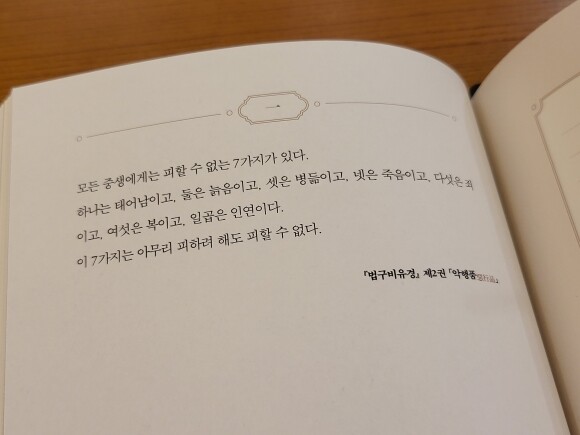 모든 중생에게는 피할 수 없는 7가지가 있다.
하나는 태어남이고, 둘은 늙음이고, 셋은 병듦이고, 넷은 죽음이고, 다섯은 죄
이고, 여섯은 복이고, 일곱은 인연이다.
이 7가지는 아무리 피하려 해도 피할 수 없다.
『법구비유경』 제2권 「악행품惡行品」